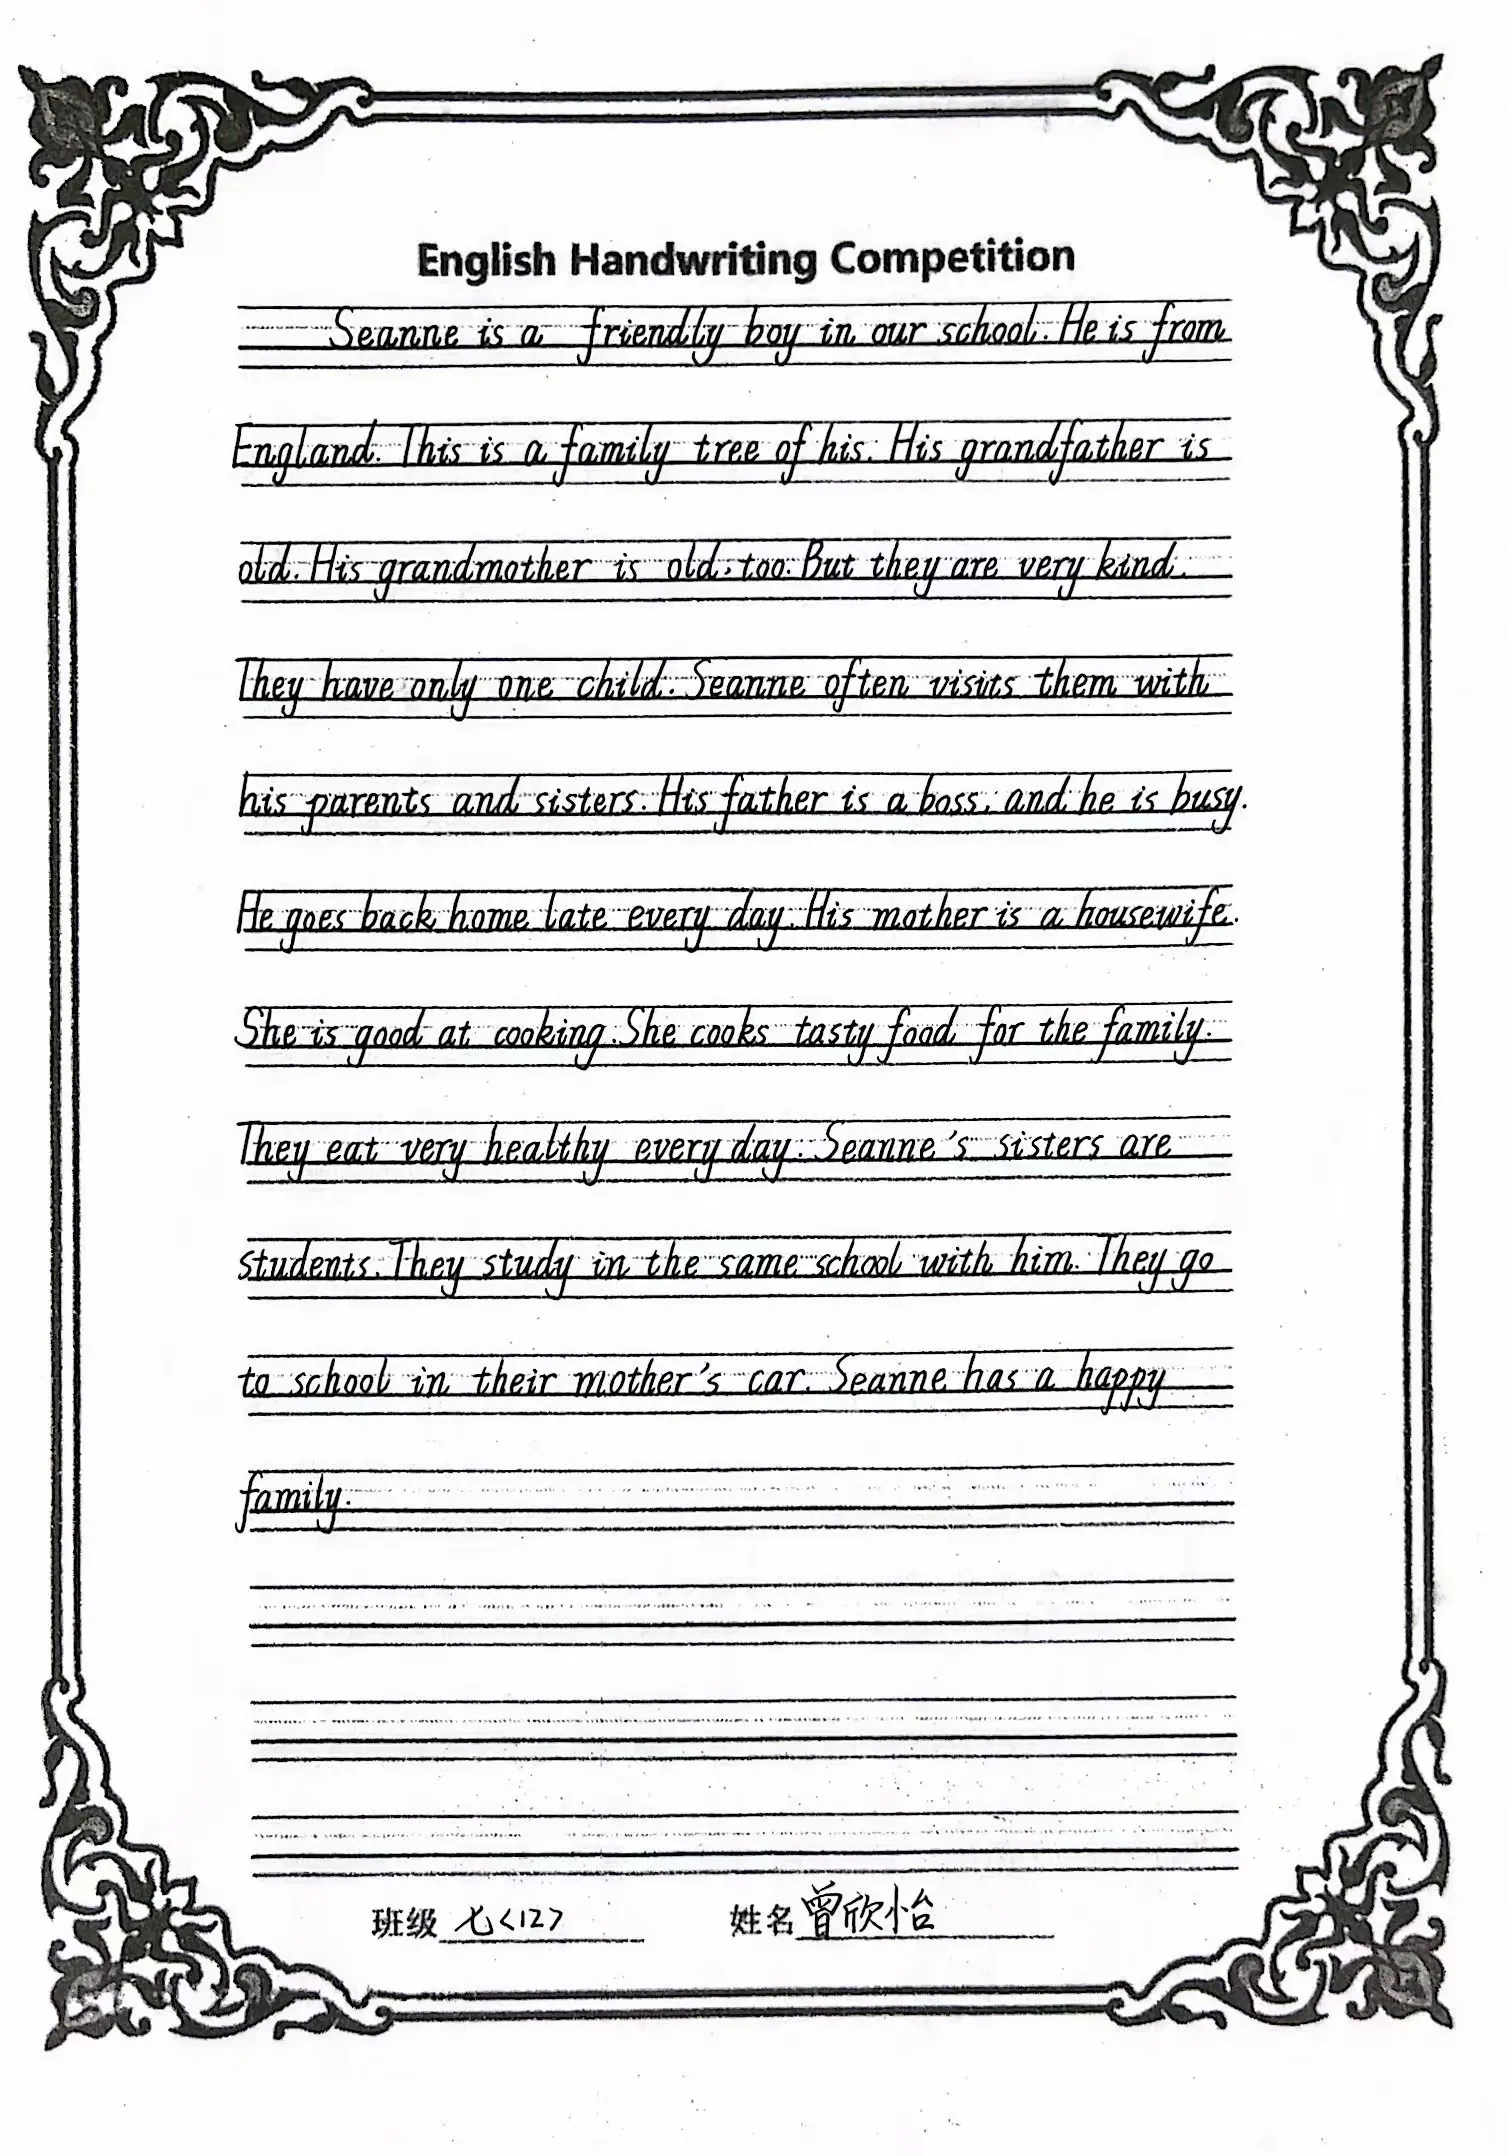 English Handwriting Competition
Seanne is a friendly boy in our school. He is from
England. This is a family tree of his. His grandfather is
old. His grandmother is old, too. But they are very kind.
They have only one child. Seanne often visits them with
his parents and sisters. His father is a boss, and he is busy.
He goes back home late every day. His mother is a housewife.
She is good at cooking. She cooks tasty food for the family.
They eat very healthy every day. Seanne's sisters are
students. They study in the same school with him. They go
to school in their mother's car. Seanne has a happy
family.
班级 七<12> 姓名 曾欣怡